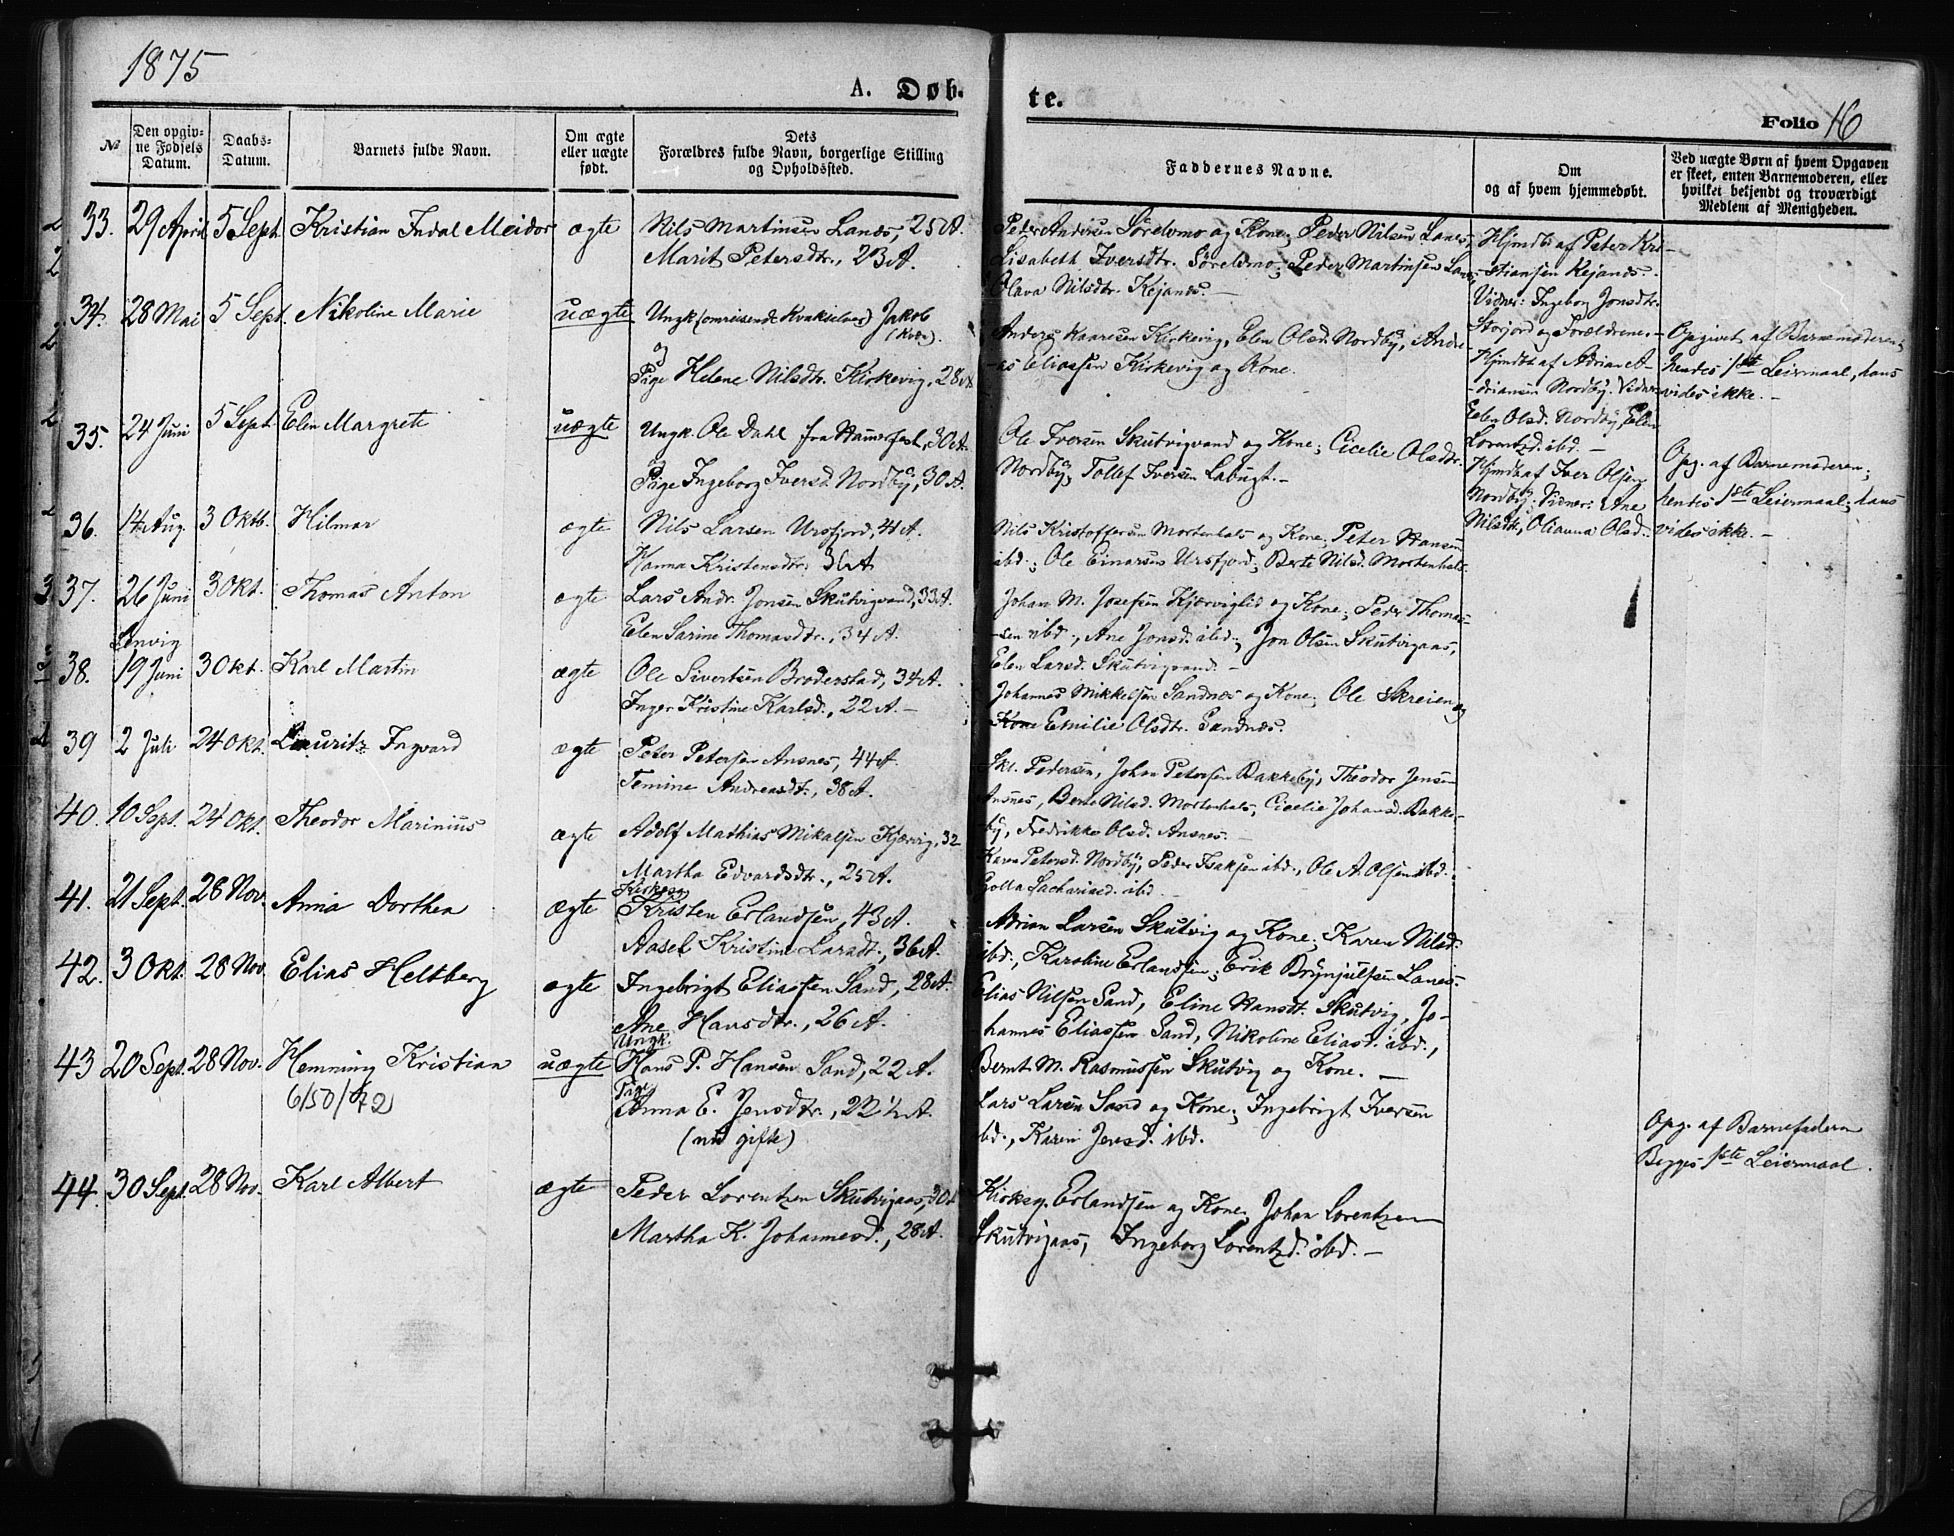 1875
A. Døb-
te.
Folio 16
№
Den opgiv-
ne Fødsels
Datum.
Daabs-
Datum.
Barnets fulde Navn.
Om ægte
eller uægte
født.
Dets
Forældres fulde Navn, borgerlige Stilling
og Opholdssted.
Faddernes Navne.
Om
og af hvem hjemmedøbt.
Ved uægte Børn af hvem Opgaven
er skeet, enten Barnemoderen, eller
hvilket bekjendt og troværdigt
Medlem af Menigheden.
33. 29 April 5 Sept. Kristian Indal Meidor ægte Nils Martinsen Lanes, 25 A.
Marit Petersdtr., 23 A.
Peder Andersen Sørelvmo og Kone; Peder Nilsen Lanes,
Lisabeth Iversdtr. Sørelvmo; Peder Martinsen Lanes
Olava Nilsdtr. Kejands. –
Hjmdbt af Peter Kri-
-stiansen Kejands.
Vidner: Ingeborg Jonsdtr.
Storjord og Forældrene. –
34. 28 Mai 5 Sept. Nikoline Marie uægte Ungk. (omreisende Kvaksalver) Jakob
(Kvæn).
og
Pige Helene Nilsdtr. Kirkevig, 28 A
Anders Kaarsen Kirkevig, Elen Olsd. Nordby, Andre-
-as Eliassen Kirkevig og Kone.
Hjmdbt af Adrian A-
-driansen Nordby. Vidner
Elen Olsd. Nordby, Elen
Lorentzd. ibd. –
Opgivet af Barnemoderen;
hendes 1ste Leiermaal, hans
vides ikke. –
35. 24 Juni 5 Sept. Elen Margrete uægte Ungk. Ole Dahl fra Hammerfest, 30 A.
og
Pige Ingeborg Iversd. Nordby, 30 A.
Ole Iversen Skutvigvand og Kone; Cicelie Olsdtr.
Nordby; Tollef Iversen Labugt. –
Hjmdbt af Iver Olsen
Nordby; Vidner: Ane
Nilsdtr, Olianna Olsd.
Opg. af Barnemoderen;
hendes 1ste Leiermaal; hans
vides ikke. –
36. 14 Aug. 3 Oktb. Hilmar ægte Nils Larsen Ursfjord, 41 A.
Hanna Kristensdtr. 36 A
Nils Kristoffersen Mortenhals og Kone; Peter Hansen
ibd.; Ole Einarsen Ursfjord; Berte Nilsd. Mortenhals.
37. 26 Juni 3 Okt. Thomas Anton ægte Lars Andr. Jonsen Skutvigvand, 33 A.
Lenvig
Elen Sarine Thomasdtr., 34 A.
Johan M. Josefsen Kjærviglid og Kone; Peder Thomas-
-sen ibd., Ane Jonsd. ibd.; Jon Olsen Skutvigaas,
Elen Larsd. Skutvigvand. –
38. 19 Juni 3 Okt. Karl Martin ægte Ole Sivertsen Brøderstad, 34 A.
Inger Kristine Karlsd., 22 A. –
Johannes Mikkelsen Sandnes og Kone; Ole Skreien og
Kone Emilie Olsdtr. Sandnes.
39 2 Juli 24 Okt. Lauritz Ingvard ægte Peter Petersen Ansnes, 44 A.
Temine Andreasdtr., 38 A.
Skl. Pedersen, Johan Petersen Bakkeby, Theodor Jensen
Ansnes, Berte Nilsd. Mortenhals, Cicelie Johansd. Bakke-
by, Fredrikke Olsd. Ansnes. –
40. 10 Sept. 24 Okt. Theodor Marinius ægte Adolf Mathias Mikalsen Kjærvig, 32
Martha Edvardsdtr., 25 A.
Karen Petersd. Nordby, Peder Isaksen ibd., Ole A. Olsen ibd.
Golla Sachariasd. ibd. –
41. 21 Sept. 28 Nov. Anna Dorthea ægte Kirkesg. Kristen Erlandsen, 43 A.
Aasel Kristine Larsdt., 36 A.
Adrian Larsen Skutvig og Kone; Karen Nilsd.
ibd., Karoline Erlandsen; Erik Brynjulfsen Lanes.
42. 3 Okt. 28 Nov. Elias Heltberg ægte Ingebrigt Eliassen Sand, 28 A.
Ane Hansdtr., 26 A.
Elias Nilsen Sand, Eline Hansdt. Skutvig, Jo-
-hannes Eliassen Sand, Nikoline Eliasd. ibd.,
Bernt M. Rasmussen Skutvig og Kone. –
43 20 Sept. 28 Nov. Hemming Kristian uægte Ungk. Hans P. Hansen Sand, 22 A.
6/50/42
Pige Anna E. Jensdtr., 22 1/2 A.
(nu gifte)
Lars Larsen Sand og Kone; Ingebrigt Iversen
ibd., Karen Jensd. ibd.
Opg. af Barnefaderen
Begges 1ste Leiermaal.
44. 30 Sept. 28 Nov. Karl Albert ægte Peder Lorentzen Skutvigaas, 30 A
Martha K. Johannesd., 28 A.
Kirkesg. Erlandsen og Kone, Johan Lorentzen
Skutvigaas, Ingeborg Lorentzd. ibd. –